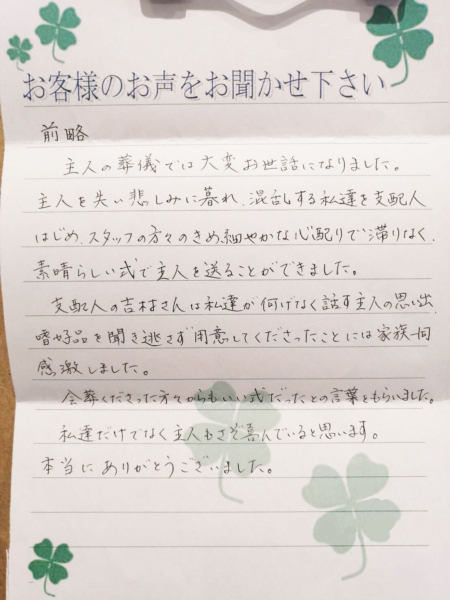 お客様のお声をお聞かせ下さい
前略
主人の葬儀では大変お世話になりました。
主人を失い悲しみに暮れ、混乱する私達を支配人
はじめ、スタッフの方々のきめ細やかな心配りで滞りなく、
素晴らしい式で主人を送ることができました。
支配人の吉村さんは私達が何げなく話す主人の思い出、
嗜好品を聞き逃さず用意してくださったことには家族一同
感激しました。
会葬くださった方々からもいい式だったとの言葉をもらいました。
私達だけでなく主人もさぞ喜んでいると思います。
本当にありがとうございました。